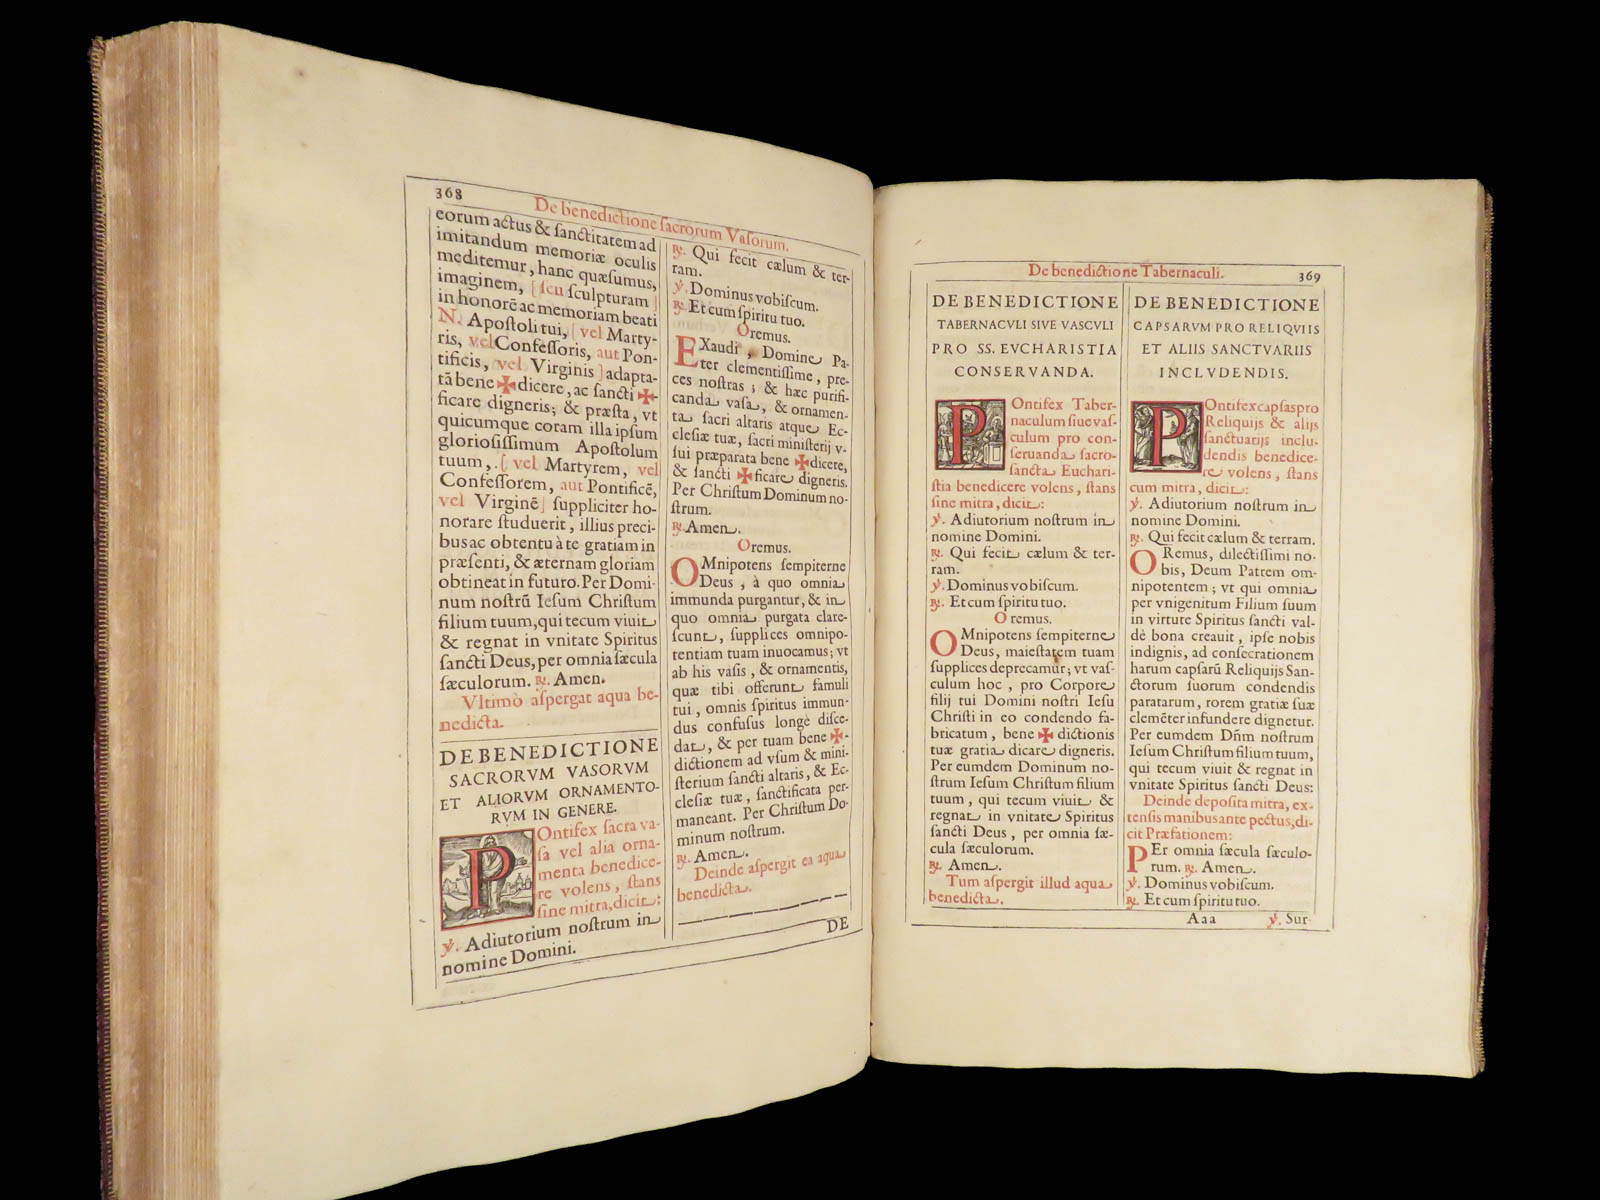 368
De benedictione sacrorum Vasorum.
eorum actus & sanctitatem ad
imitandum memoriæ oculis
meditemur, hanc quæsumus,
imaginem, [seu sculpturam]
in honorē ac memoriam beati
N. Apostoli tui, [vel Marty-
ris, vel Confessoris, aut Pon-
tificis, vel Virginis] adapta-
tā bene ✠ dicere, ac sancti ✠
ficare digneris; & præsta, vt
quicumque coram illa ipsum
gloriosissimum Apostolum
tuum, [vel Martyrem, vel
Confessorem, aut Pontificē,
vel Virginē] suppliciter ho-
norare studuerit, illius preci-
bus ac obtentu à te gratiam in
præsenti, & æternam gloriam
obtineat in futuro. Per Domi-
num nostrū Iesum Christum
filium tuum, qui tecum viuit
& regnat in vnitate Spiritus
sancti Deus, per omnia sæcula
sæculorum. ℟. Amen.
Vltimò aspergat aqua be-
nedicta.
DE BENEDICTIONE
SACRORVM VASORVM
ET ALIORVM ORNAMENTO-
RVM IN GENERE.
POntifex sacra va-
sa vel alia orna-
menta benedice-
re volens, stans
sine mitra, dicit:
℣. Adiutorium nostrum in
nomine Domini.
℟. Qui fecit cælum & ter-
ram.
℣. Dominus vobiscum.
℟. Et cum spiritu tuo.
Oremus.
EXaudi, Domine Pa-
ter clementissime, pre-
ces nostras; & hæc purifi-
canda vasa, & ornamen-
ta sacri altaris atque Ec-
clesiæ tuæ, sacri ministerij v-
sui præparata bene ✠ dicere,
& sancti ✠ ficare digneris.
Per Christum Dominum no-
strum.
℟. Amen.
Oremus.
OMnipotens sempiterne
Deus, à quo omnia
immunda purgantur, & in
quo omnia purgata clare-
scunt, supplices omnipo-
tentiam tuam inuocamus; vt
ab his vasis, & ornamentis,
quæ tibi offerunt famuli
tui, omnis spiritus immun-
dus confusus longè disce-
dat, & per tuam bene ✠-
dictionem ad vsum & mini-
sterium sancti altaris, & Ec-
clesiæ tuæ, sanctificata per-
maneant. Per Christum Do-
minum nostrum.
℟. Amen.
Deinde aspergit ea aqua
benedicta.
DE
De benedictione Tabernaculi.
369
DE BENEDICTIONE
TABERNACVLI SIVE VASCVLI
PRO SS. EVCHARISTIA
CONSERVANDA.
POntifex Taber-
naculum siue vas-
culum pro con-
seruanda sacro-
sancta Euchari-
stia benedicere volens, stans
sine mitra, dicit:
℣. Adiutorium nostrum in
nomine Domini.
℟. Qui fecit cælum & ter-
ram.
℣. Dominus vobiscum.
℟. Et cum spiritu tuo.
Oremus.
OMnipotens sempiterne
Deus, maiestatem tuam
supplices deprecamur; vt vas-
culum hoc, pro Corpore
filij tui Domini nostri Iesu
Christi in eo condendo fa-
bricatum, bene ✠ dictionis
tuæ gratia dicare digneris.
Per eumdem Dominum no-
strum Iesum Christum filium
tuum, qui tecum viuit &
regnat in vnitate Spiritus
sancti Deus, per omnia sæ-
cula sæculorum.
℟. Amen.
Tum aspergit illud aqua
benedicta.
DE BENEDICTIONE
CAPSARVM PRO RELIQVIIS
ET ALIIS SANCTVARIIS
INCLVDENDIS.
POntifex capsas pro
Reliquijs & alijs
sanctuarijs inclu-
dendis benedice-
re volens, stans
cum mitra, dicit:
℣. Adiutorium nostrum in
nomine Domini.
℟. Qui fecit cælum & terram.
ORemus, dilectissimi no-
bis, Deum Patrem om-
nipotentem; vt qui omnia
per vnigenitum Filium suum
in virtute Spiritus sancti val-
dè bona creauit, ipse nobis
indignis, ad consecrationem
harum capsarū Reliquijs San-
ctorum suorum condendis
paratarum, rorem gratiæ suæ
clemēter infundere dignetur.
Per eumdem Dn̄m nostrum
Iesum Christum filium tuum,
qui tecum viuit & regnat in
vnitate Spiritus sancti Deus:
Deinde deposita mitra, ex-
tensis manibus ante pectus, di-
cit Præfationem:
PEr omnia sæcula sæculo-
rum. ℟. Amen.
℣. Dominus vobiscum.
℟. Et cum spiritu tuo.
Aaa
℣. Sur-